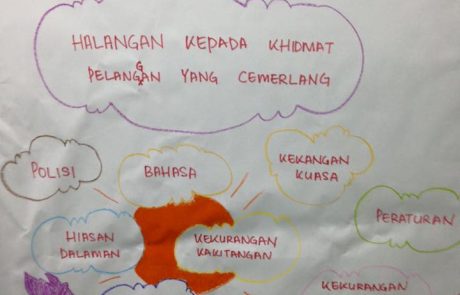 HALANGAN KEPADA KHIDMAT
PELANGGAN YANG CEMERLANG
POLISI
BAHASA
KEKANGAN
KUASA
PERATURAN
HIASAN
DALAMAN
KEKURANGAN
KAKITANGAN
KEKURANGAN